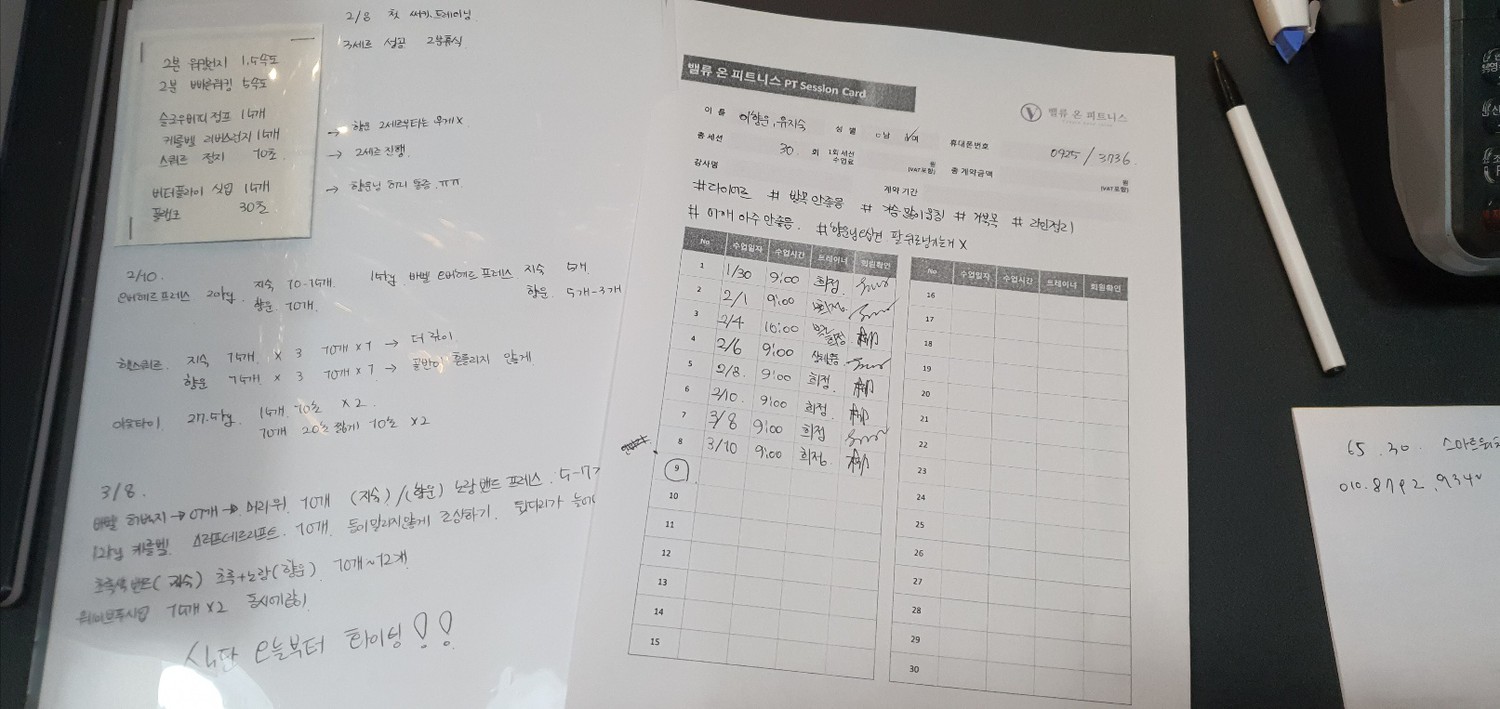 2/8 첫 써킷 트레이닝
3세트 성공 2분휴식
2분 워킹런지 1.5속도
2분 빠른워킹 5속도
슬로우버피점프 15개
케틀벨 리버스런지 15개
스쿼트 정지 10초
버터플라이 싯업 15개
플랭크 30초
→ 향운 2세트부터는 무게X
→ 2세트 진행
→ 향운님 허리 통증.ㅠㅠ
2/10.
오버헤드프레스 20kg. 지숙 10-15개 15kg 바벨 오버헤드 프레스 지숙 5개
향운 10개. 향운. 5개-3개
핵스쿼트 지숙 15개 × 3 10개 × 1 → 더 깊이
향운 15개 × 3 10개 × 1 → 골반이 흔들리지 않게
이너타이 27.5kg. 15개. 10초 ×2.
10개 20초 짧게 10초 ×2
3/8.
바벨 허벅지 → 어깨 → 머리위 10개 (지숙) / (향운) 노랑 밴드 프레스.
12kg 케틀벨 데드리프트. 10개. 등이 말리지않게 조심하기. 뒷다리가
초록색 밴드(지숙) 초록+노랑(향운) 10개~12개
웨이브푸시업 15개 ×2 동시에
식단 오늘부터 화이팅!!
밸류 온 피트니스 PT Session Card
밸류 온 피트니스
이 름 이향운, 유지숙 성 별 □남 ☑여 휴대폰번호 0925 / 3736.
총 세션 30. 회 1회 세션 수업료 원 (VAT포함) 총 계약금액 원 (VAT포함)
강사명 계약 기간
#다이어트 # 발목 안좋음 # 가슴 많이 뭉침 # 거북목 # 라인정리
# 어깨 아주 안좋음. #향운님 팔 뒤로넘기는거 X
No 수업일자 수업시간 트레이너 회원확인
1 1/30 9:00 희정.
2 2/1 9:00 희정
3 2/4 10:00 희정
4 2/6 9:00
5 2/8. 9:00 희정.
6 2/10. 9:00 희정
7 3/8 9:00 희정
8 3/10 9:00 희정
9
10
11
12
13
14
15
No 수업일자 수업시간 트레이너 회원확인
16
17
18
19
20
21
22
23
24
25
26
27
28
29
30
65.30.
010.8792.934